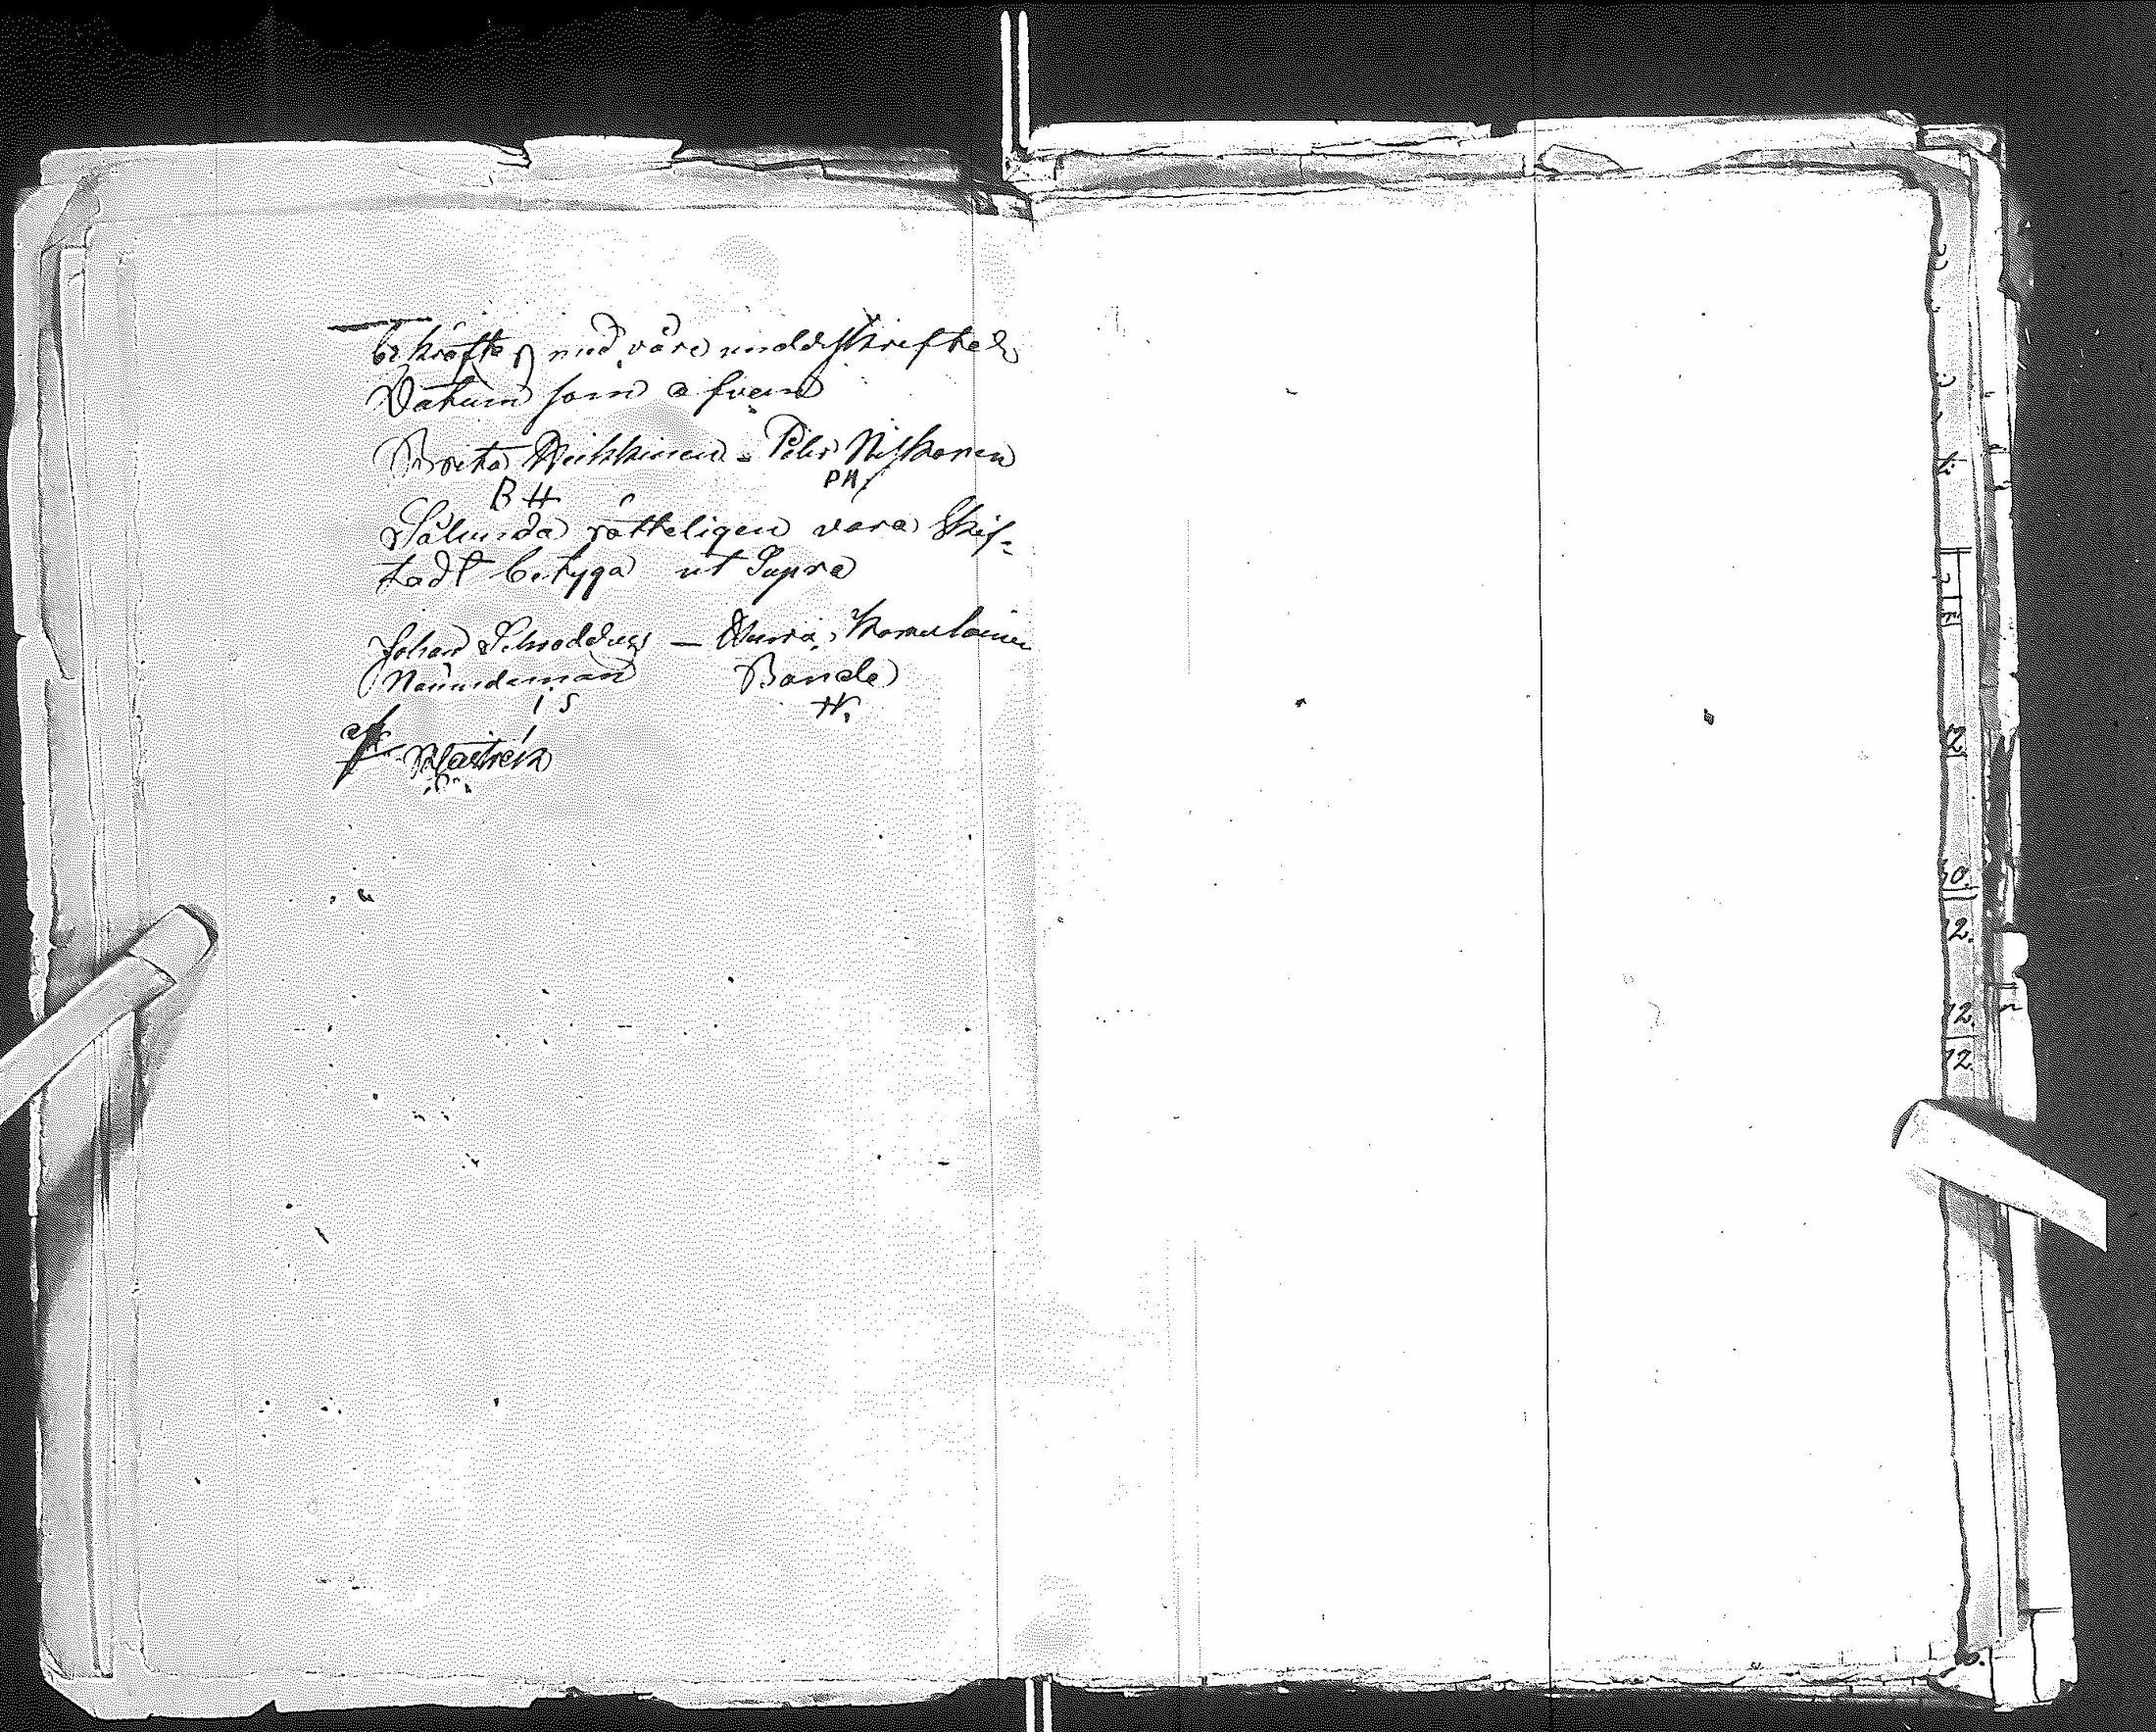 bekräfta med våre underskrifter
Datum som ofvan
Brita Heikkinen - Petr Niskanen
BH PN
Sålunda rätteligen vara Skif-
tadt betyga ut Supra
Johan Schroderus — Komulainen
Nämndeman Bonde
I S
12
30.
2.
12.
12